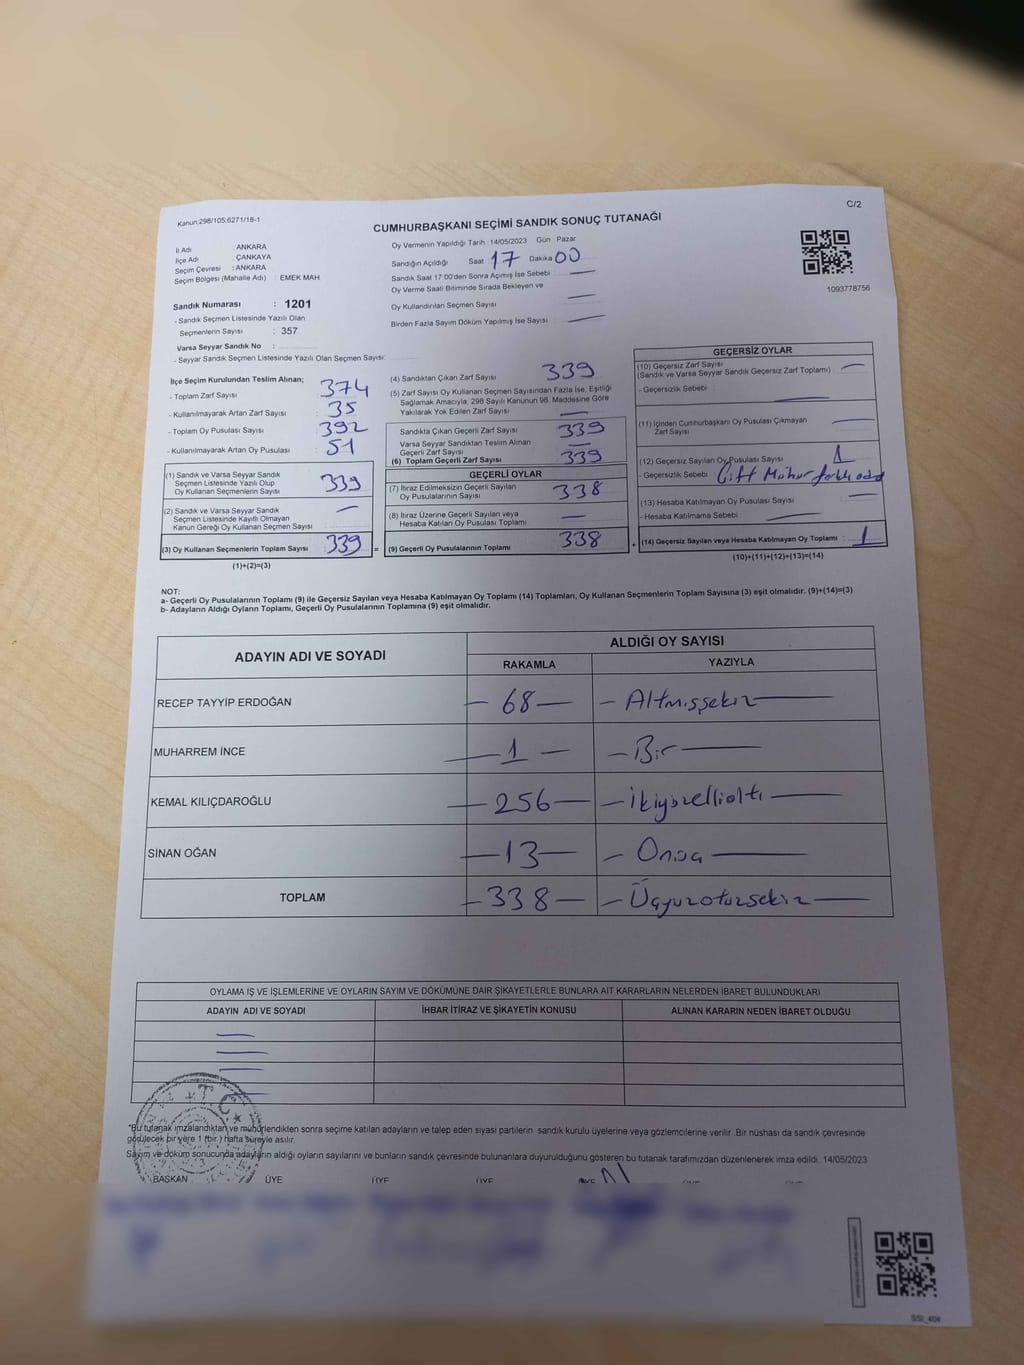 Kanun:298/105;6271/18-1
C/2
CUMHURBAŞKANI SEÇİMİ SANDIK SONUÇ TUTANAĞI
İl Adı : ANKARA
İlçe Adı : ÇANKAYA
Seçim Çevresi : ANKARA
Seçim Bölgesi (Mahalle Adı) : EMEK MAH
Sandık Numarası : 1201
- Sandık Seçmen Listesinde Yazılı Olan
Seçmenlerin Sayısı : 357
Varsa Seyyar Sandık No :
- Seyyar Sandık Seçmen Listesinde Yazılı Olan Seçmen Sayısı:
Oy Vermenin Yapıldığı Tarih : 14/05/2023 Gün : Pazar
Sandığın Açıldığı Saat 17 Dakika 00
Sandık Saat 17.00'den Sonra Açımış İse Sebebi —
Oy Verme Saati Bitiminde Sırada Bekleyen ve
Oy Kullandırılan Seçmen Sayısı —
Birden Fazla Sayım Döküm Yapılmış İse Sayısı —
1093778756
İlçe Seçim Kurulundan Teslim Alınan;
- Toplam Zarf Sayısı : 374
- Kullanılmayarak Artan Zarf Sayısı : 35
- Toplam Oy Pusulası Sayısı : 392
- Kullanılmayarak Artan Oy Pusulası : 51
(1) Sandık ve Varsa Seyyar Sandık
Seçmen Listesinde Yazılı Olup
Oy Kullanan Seçmenlerin Sayısı : 339
(2) Sandık ve Varsa Seyyar Sandık
Seçmen Listesinde Kayıtlı Olmayan
Kanun Gereği Oy Kullanan Seçmen Sayısı : —
(3) Oy Kullanan Seçmenlerin Toplam Sayısı : 339 =
(1)+(2)=(3)
(4) Sandıktan Çıkan Zarf Sayısı : 339
(5) Zarf Sayısı Oy Kullanan Seçmen Sayısından Fazla İse, Eşitliği
Sağlamak Amacıyla, 298 Sayılı Kanunun 98. Maddesine Göre
Yakılarak Yok Edilen Zarf Sayısı : —
Sandıkta Çıkan Geçerli Zarf Sayısı : 339
Varsa Seyyar Sandıktan Teslim Alınan
Geçerli Zarf Sayısı : —
(6) Toplam Geçerli Zarf Sayısı : 339
GEÇERLİ OYLAR
(7) İtiraz Edilmeksizin Geçerli Sayılan
Oy Pusulalarının Sayısı : 338
(8) İtiraz Üzerine Geçerli Sayılan veya
Hesaba Katılan Oy Pusulası Toplamı : —
(9) Geçerli Oy Pusulalarının Toplamı : 338 +
GEÇERSİZ OYLAR
(10) Geçersiz Zarf Sayısı
(Sandık ve Varsa Seyyar Sandık Geçersiz Zarf Toplamı) : —
- Geçersizlik Sebebi : —
(11) İçinden Cumhurbaşkanı Oy Pusulası Çıkmayan
Zarf Sayısı : —
(12) Geçersiz Sayılan Oy Pusulası Sayısı : 1
- Geçersizlik Sebebi : Çift Mühür farklı aday
(13) Hesaba Katılmayan Oy Pusulası Sayısı : —
- Hesaba Katılmama Sebebi : —
(14) Geçersiz Sayılan veya Hesaba Katılmayan Oy Toplamı : 1
(10)+(11)+(12)+(13)=(14)
NOT:
a- Geçerli Oy Pusulalarının Toplamı (9) ile Geçersiz Sayılan veya Hesaba Katılmayan Oy Toplamı (14) Toplamları, Oy Kullanan Seçmenlerin Toplam Sayısına (3) eşit olmalıdır. (9)+(14)=(3)
b- Adayların Aldığı Oyların Toplamı, Geçerli Oy Pusulalarının Toplamına (9) eşit olmalıdır.
ADAYIN ADI VE SOYADI ALDIĞI OY SAYISI
RAKAMLA YAZIYLA
RECEP TAYYİP ERDOĞAN — 68 — — Altmışsekiz —
MUHARREM İNCE — 1 — — Bir —
KEMAL KILIÇDAROĞLU — 256 — — İkiyüzellialtı —
SİNAN OĞAN — 13 — — Onüç —
TOPLAM — 338 — — Üçyüzotuzsekiz —
OYLAMA İŞ VE İŞLEMLERİNE VE OYLARIN SAYIM VE DÖKÜMÜNE DAİR ŞİKAYETLERLE BUNLARA AİT KARARLARIN NELERDEN İBARET BULUNDUKLARI
ADAYIN ADI VE SOYADI İHBAR İTİRAZ VE ŞİKAYETİN KONUSU ALINAN KARARIN NEDEN İBARET OLDUĞU
T.C.
*Bu tutanak imzalandıktan ve mühürlendikten sonra seçime katılan adayların ve talep eden siyasi partilerin sandık kurulu üyelerine veya gözlemcilerine verilir .Bir nüshası da sandık çevresinde
görülecek bir yere 1 (bir ) hafta süreyle asılır.
Sayım ve döküm sonucunda adayların aldığı oyların sayılarını ve bunların sandık çevresinde bulunanlara duyurulduğunu gösteren bu tutanak tarafımızdan düzenlenerek imza edildi. 14/05/2023
BAŞKAN ÜYE ÜYE ÜYE ÜYE ÜYE ÜYE
SSI_404